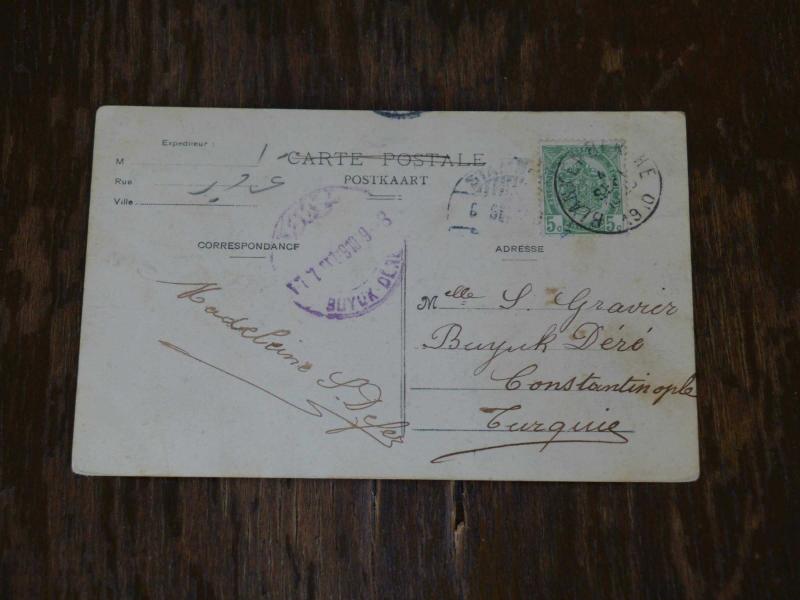 Expediteur :
M
Rue
Ville
CARTE POSTALE
POSTKAART
CORRESPONDANCE
ADRESSE
BUYUK-DERE
5c 5c
Madeleine
Melle S. Gravier
Buyuk Déré
Constantinople
Turquie